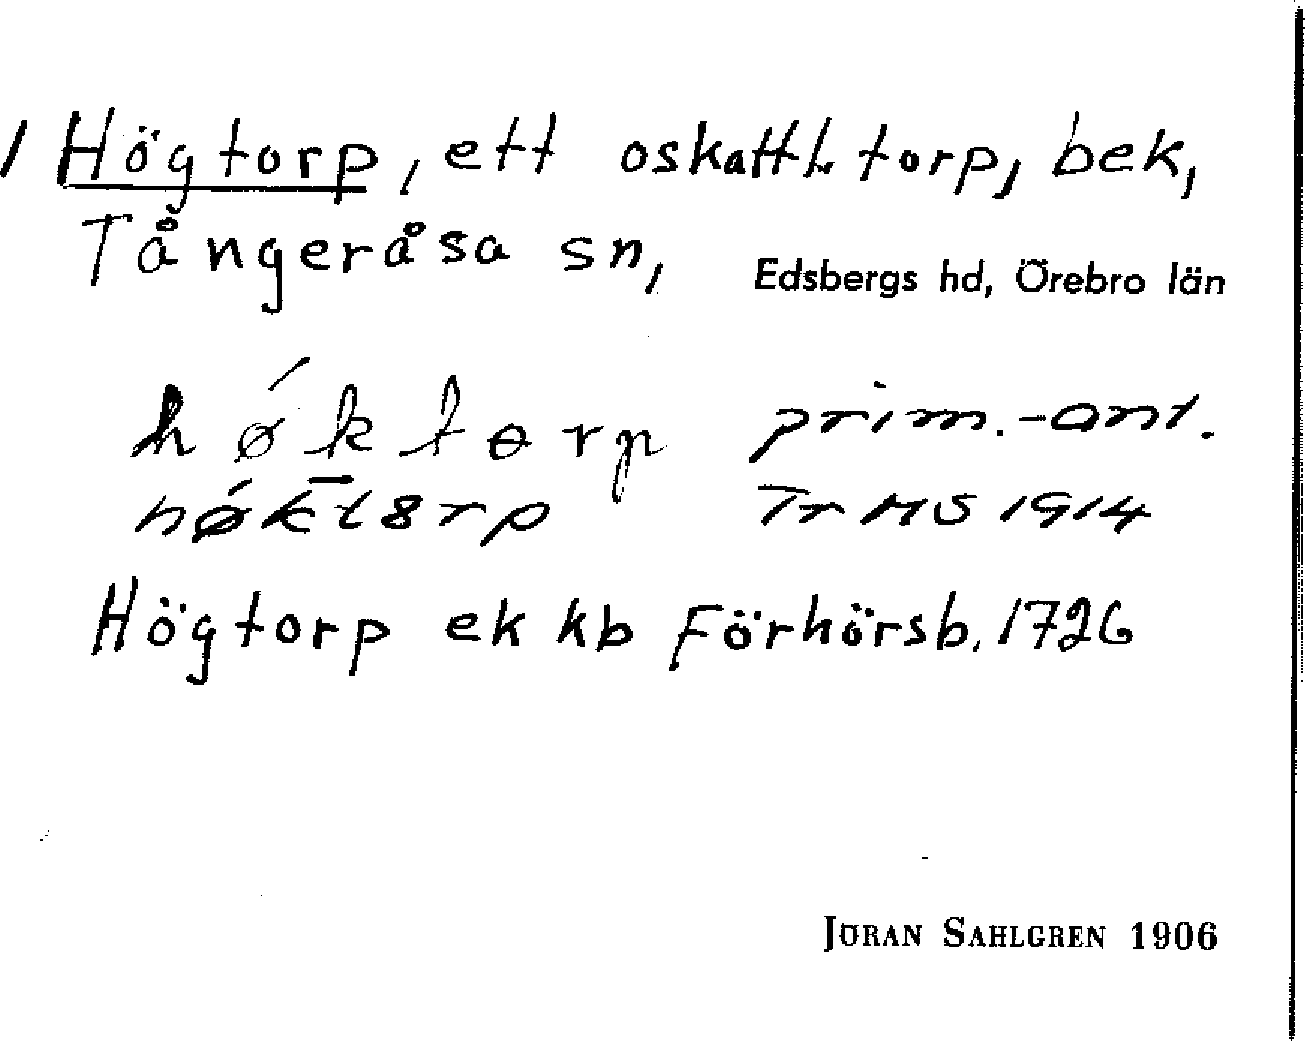 1 Högtorp, ett oskattl. torp, bek,
Tångeråsa sn, Edsbergs hd, Örebro län
hǿktorp prim.-ant.
Tr MS 1914
Högtorp ek kb Förhörsb. 1726
JÖRAN SAHLGREN 1906